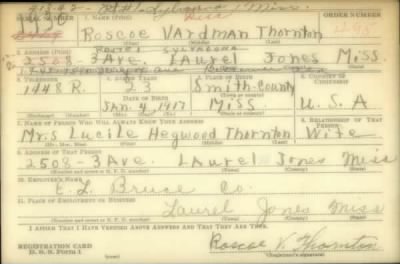 SERIAL NUMBER
1. NAME (Print)
ORDER NUMBER
Roscoe Vardman Thornton
(First) (Middle) (Last)
2. ADDRESS (Print)
2508-3 Ave. Laurel Jones Miss.
3. TELEPHONE
4. AGE IN YEARS
5. PLACE OF BIRTH
6. COUNTRY OF CITIZENSHIP
1448 R.
23
Smith-County
DATE OF BIRTH
Jan. 4, 1917
Miss.
U.S.A
7. NAME OF PERSON WHO WILL ALWAYS KNOW YOUR ADDRESS
8. RELATIONSHIP OF THAT PERSON
Mrs Lucile Hegwood Thornton
Wife
(Mr., Mrs., Miss) (First) (Middle) (Last)
9. ADDRESS OF THAT PERSON
2508-3 Ave. Laurel Jones Miss
10. EMPLOYER'S NAME
E. L. Bruce Co.
11. PLACE OF EMPLOYMENT OR BUSINESS
Laurel Jones Miss
I AFFIRM THAT I HAVE VERIFIED ABOVE ANSWERS AND THAT THEY ARE TRUE.
REGISTRATION CARD
D. S. S. Form 1
Roscoe V. Thornton
(Registrant's signature)